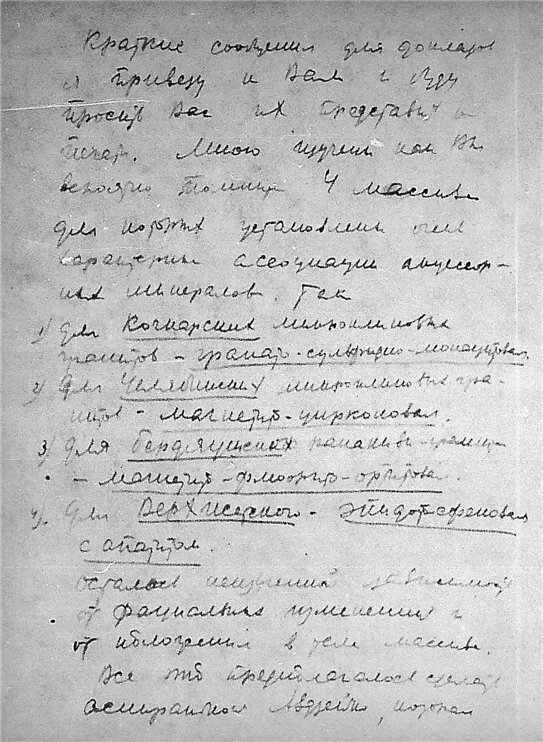 Краткие сообщения для докладов
я привезу и Вам и буду
просить Вас их представить в
печать. Мною изучены как Вы
вероятно помните 4 массива
для которых установлены очень
характерные ассоциации акцессор-
ных минералов. Так
1) для Кочкарских микроклиновых
гранитов - гранато-сульфидно-монацитовая.
2) Для Челябинских микроклиновых гра-
нитов - магнетит-цирконовая.
3) для бердяушских рапакиви-гранитов
- магнетит-флюорит-ортитовая.
4) Для Верхисетского - эпидот-сфеновая
с апатитом.
осталось неизученной зависимость
от фациальных изменений и
от положения в теле массива.
Все это предполагалось сделать
аспиранткой, которая